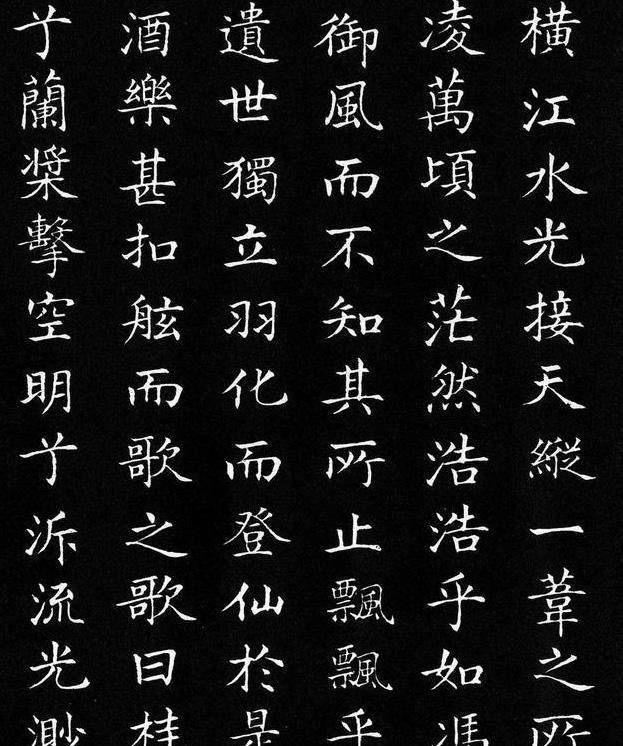 橫江水光接天縱一葦之所
凌萬頃之茫然浩浩乎如馮
御風而不知其所止飄飄乎
遺世獨立羽化而登仙於是
酒樂甚扣舷而歌之歌曰桂
兮蘭槳擊空明兮泝流光渺